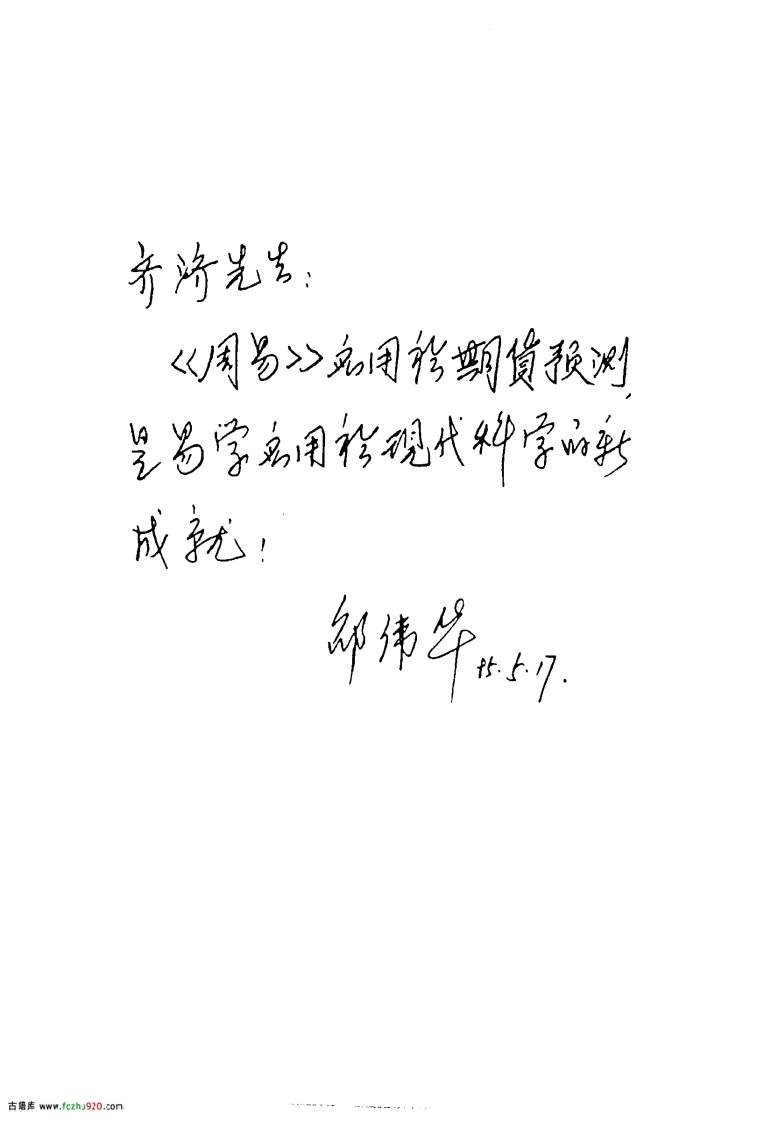 齐济先生：
《周易》应用於期货预测，
是易学应用於现代科学的新
成就！
邵伟华 95.5.17.
古籍库 www.fczhu920.com